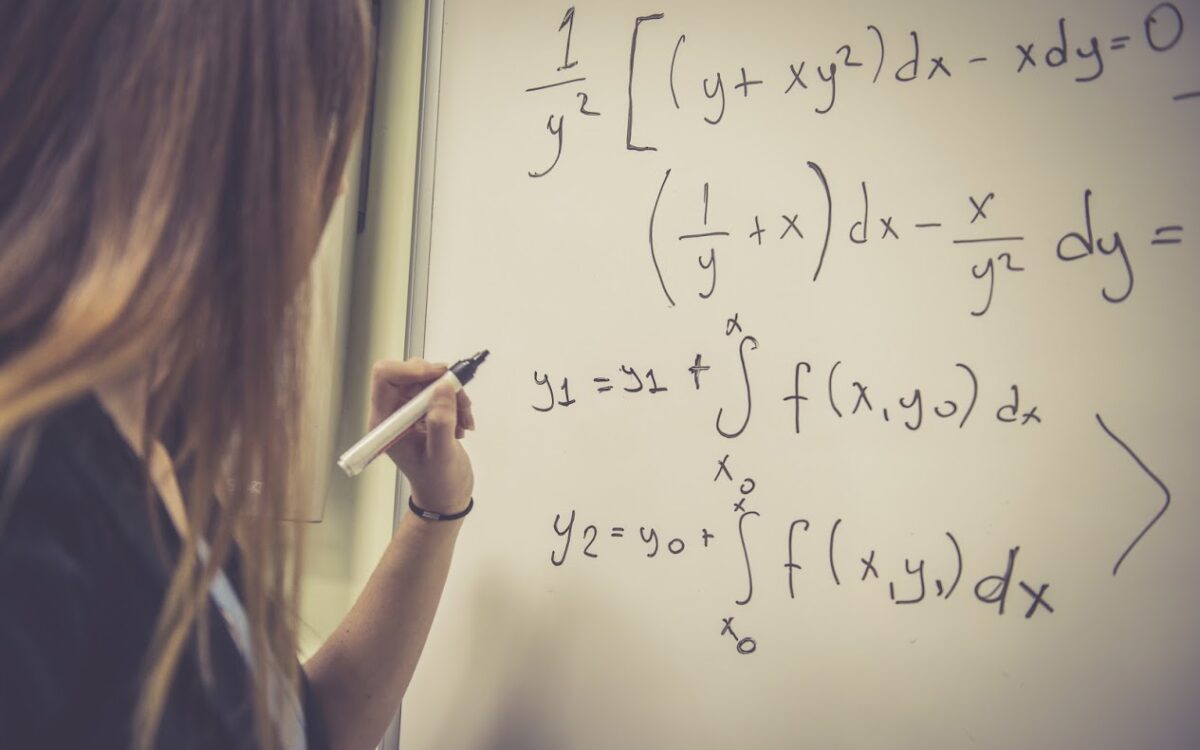 1/y² [(y + xy²)dx - xdy = 0
(1/y + x) dx - x/y² dy =
y1 = y1 + ∫_{x0}^{x} f(x, y0) dx
y2 = y0 + ∫_{x0}^{x} f(x, y1) dx